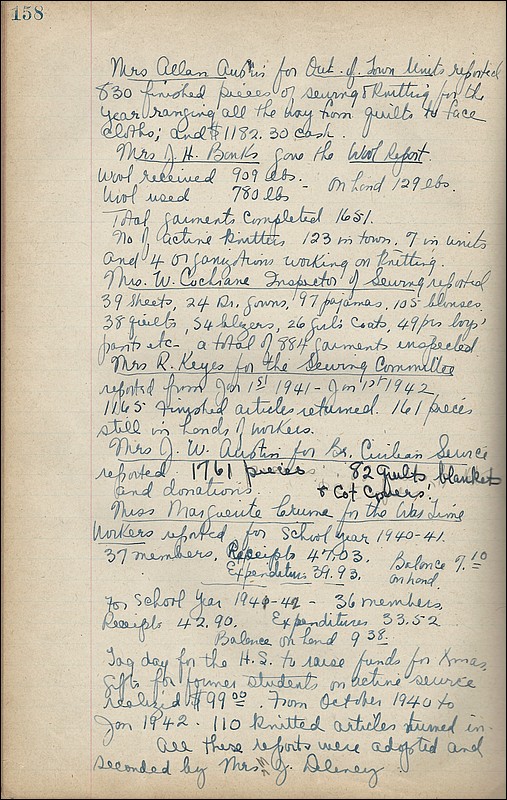 158
Mrs Allan Austin for Out-of-Town Units reported
830 finished pieces of sewing & knitting for the
year ranging all the way from quilts to face
cloths; and $1182.30 cash.
Mrs J. H. Banks gave the Wool Report.
Wool received 909 lbs. - on hand 129 lbs.
Wool used 780 lbs
Total garments completed 1651.
No of active knitters 123 in town, 7 in units
and 4 organizations working on knitting.
Mrs. W. Cochrane Inspector of Sewing reported
39 sheets, 24 Dr. gowns, 97 pajamas, 105 blouses
38 quilts, 54 blazers, 26 girls coats, 49 prs boys'
pants etc - a total of 884 garments inspected
Mrs R. Keyes for the Sewing Committee
reported from Jan 1st 1941 - Jan 1st 1942
1165 finished articles returned. 161 pieces
still in hands of workers.
Mrs J. W. Austin for Br. Civilian Service
reported 1761 pieces 82 quilts, blankets
and donations & Cot Covers.
Miss Marguerite Crume for the War Time
Workers reported for School year 1940-41.
37 members. Receipts 47.03. Balance 7.10
Expenditures 39.93. on hand.
For School Year 1941-42 - 36 members
Receipts 42.90. Expenditures 33.52
Balance on hand 9.38
Tag day for the H.S. to raise funds for Xmas
gifts for former students on active service
realized $99.00. From October 1940 to
Jan 1942 - 110 knitted articles turned in.
All these reports were adopted and
seconded by Mrs J. Deleney.